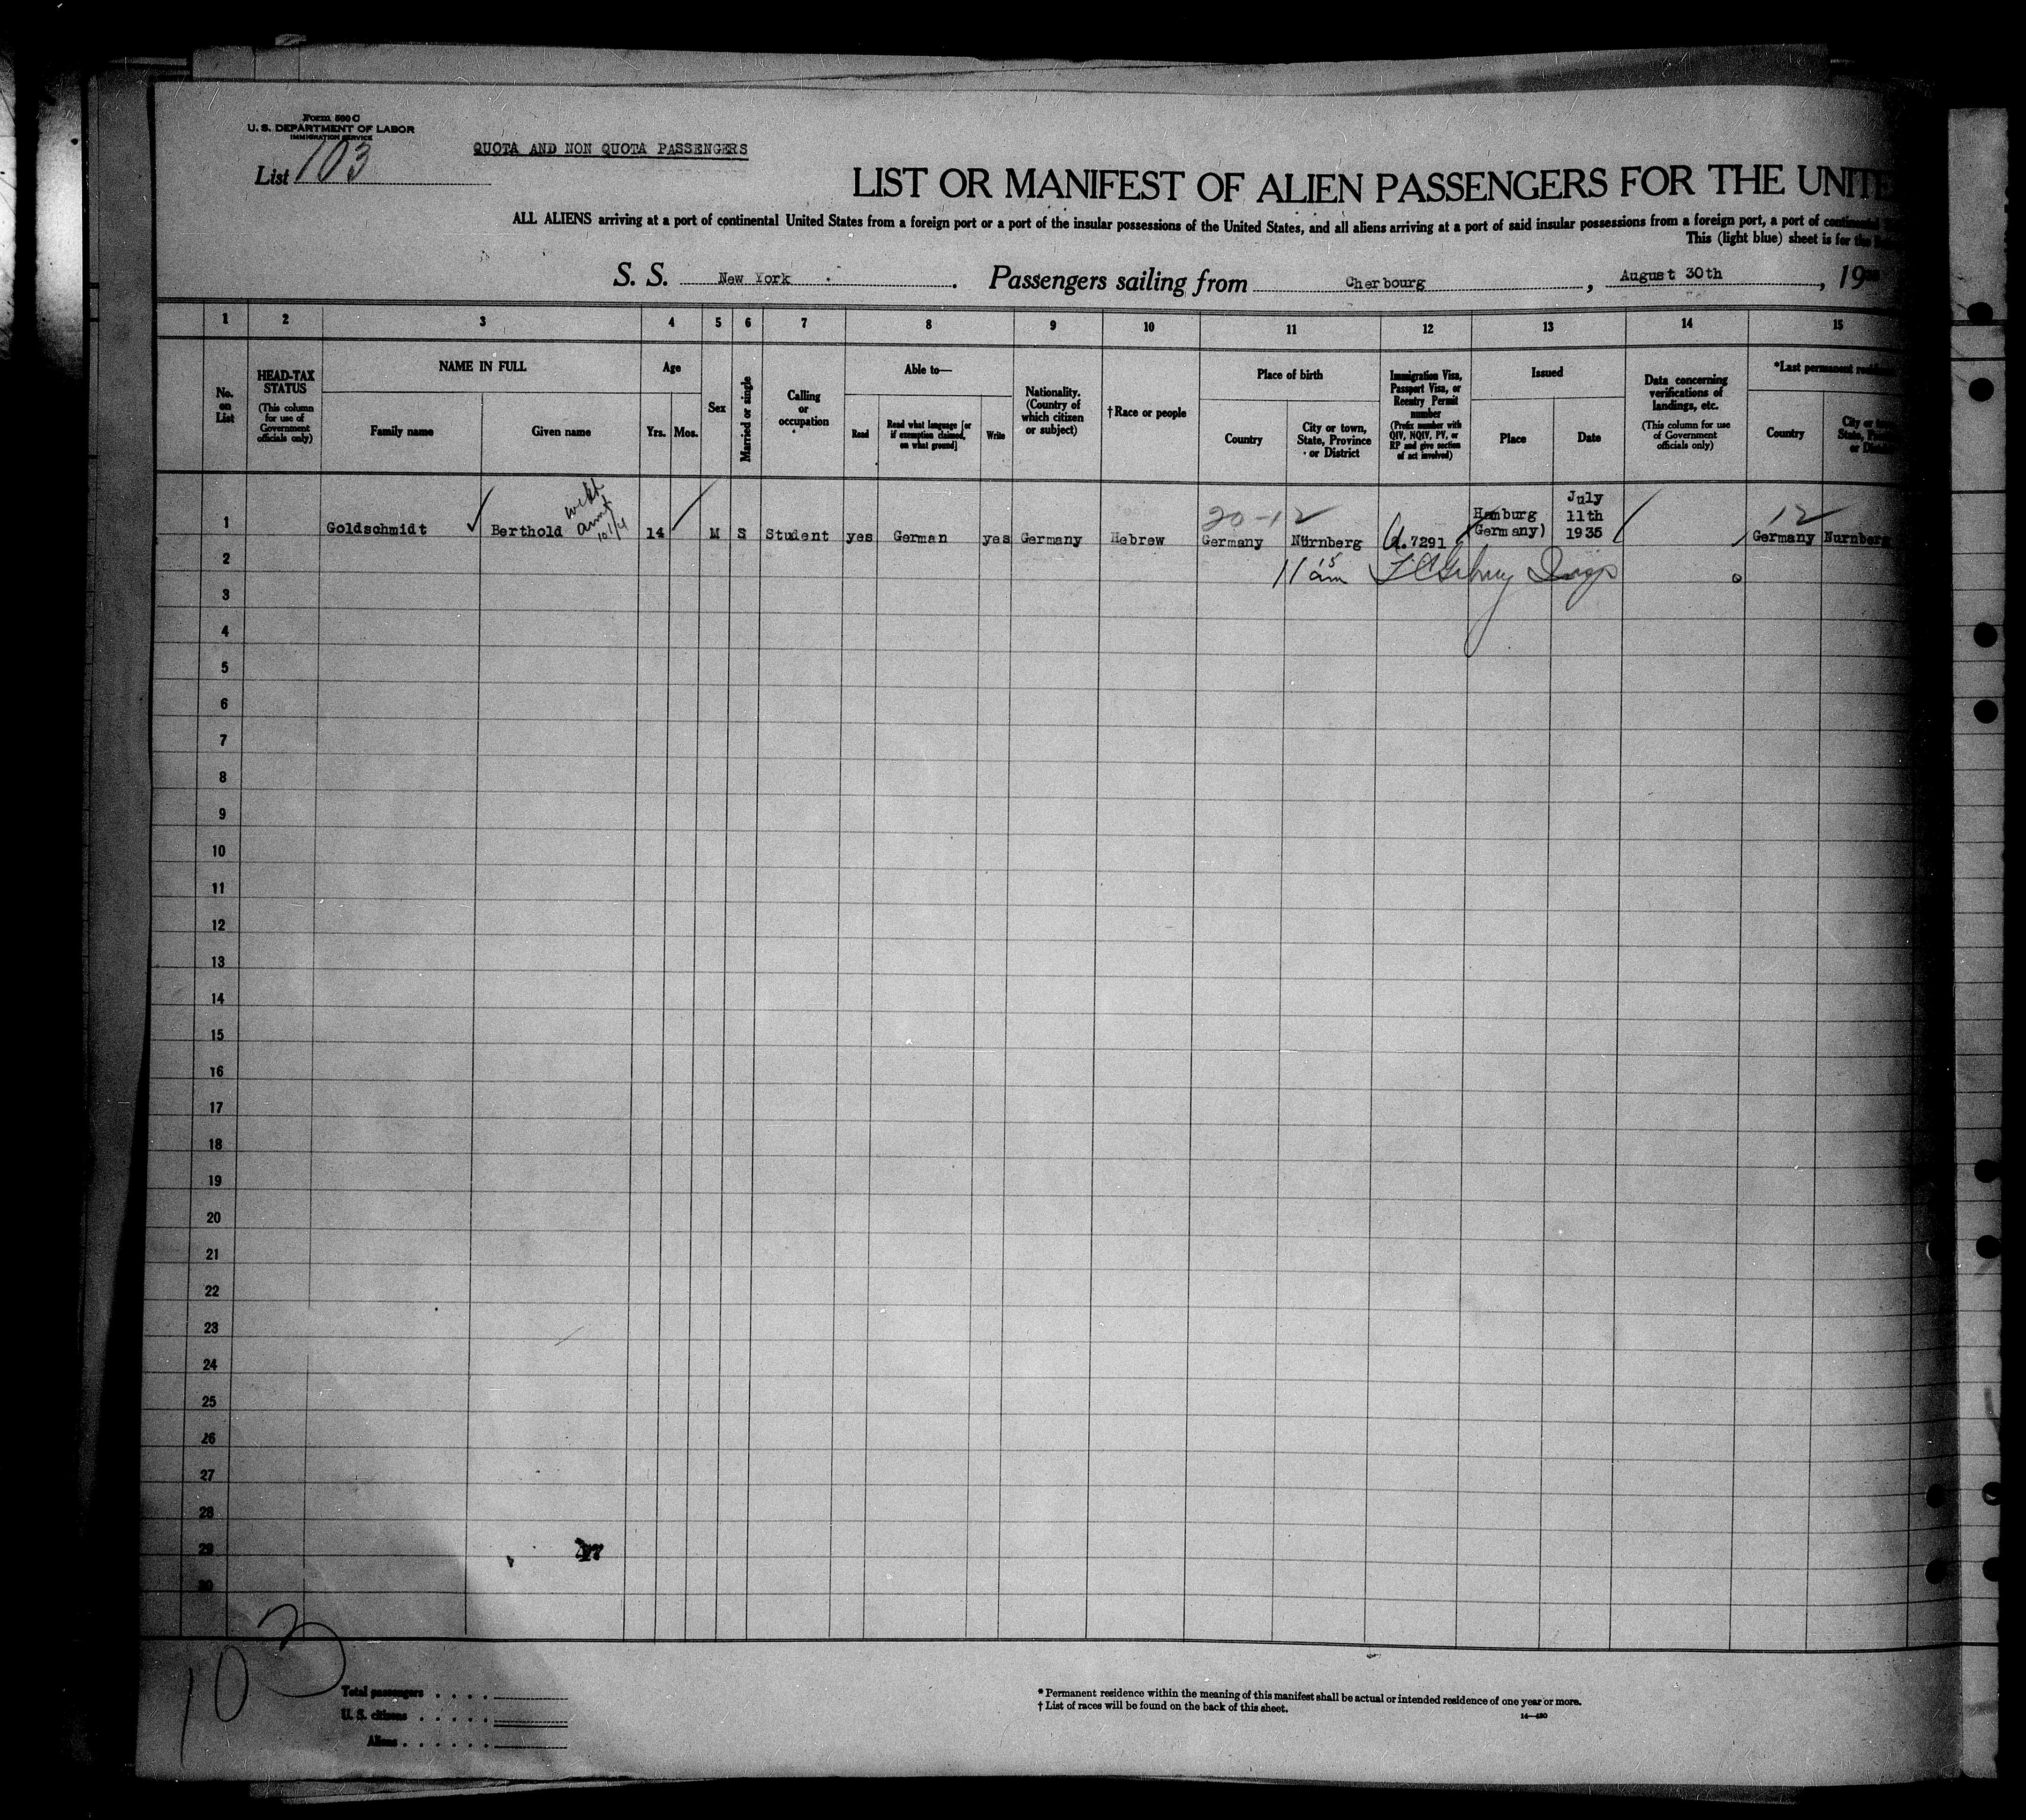 Form 500 C
U. S. DEPARTMENT OF LABOR
IMMIGRATION SERVICE
List 103
QUOTA AND NON QUOTA PASSENGERS
LIST OR MANIFEST OF ALIEN PASSENGERS FOR THE UNITE
ALL ALIENS arriving at a port of continental United States from a foreign port or a port of the insular possessions of the United States, and all aliens arriving at a port of said insular possessions from a foreign port, a port of continental
This (light blue) sheet is for the
S. S. New York. Passengers sailing from Cherbourg, August 30th, 19
1 2 3 4 5 6 7 8 9 10 11 12 13 14 15
No. on List
HEAD-TAX STATUS
(This column for use of Government officials only)
NAME IN FULL
Family name
Given name
Age
Yrs.
Mos.
Sex
Married or single
Calling or occupation
Able to—
Read
Read what language [or if exemption claimed, on what ground]
Write
Nationality. (Country of which citizen or subject)
†Race or people
Place of birth
Country
City or town, State, Province or District
Immigration Visa, Passport Visa, or Reentry Permit number
(Prefix number with QIV, NQIV, PV, or RP and give section of act involved)
Issued
Place
Date
Data concerning verifications of landings, etc.
(This column for use of Government officials only)
*Last permanent
Country
City or
State,
or
20-12
12
1 Goldschmidt Berthold 14 M S Student yes German yes Germany Hebrew Germany Nürnberg Q.7291 Hamburg Germany) July 11th 1935 Germany Nurnberg
10/4
11 15 am
2
3
4
5
6
7
8
9
10
11
12
13
14
15
16
17
18
19
20
21
22
23
24
25
26
27
28
29
30
103
Total passengers
U. S. citizens
Aliens
* Permanent residence within the meaning of this manifest shall be actual or intended residence of one year or more.
† List of races will be found on the back of this sheet.
14—480